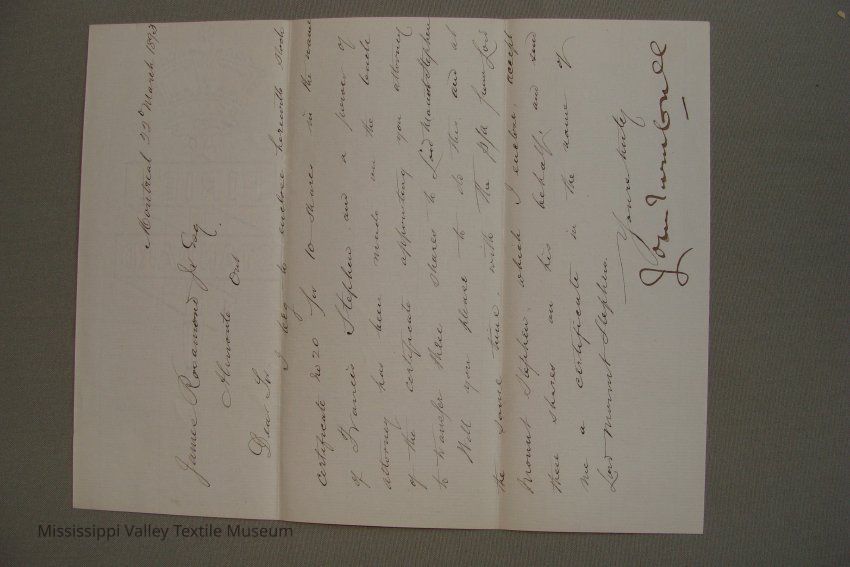 Montreal 22d March 1893
James Rosamond Jr Esq
Almonte Ont
Dear Sir,
I beg to enclose herewith Stock
certificate No 20 for 10 shares in the name
of Francis Stephen and a power of
attorney has been made on the back
of the certificate appointing you attorney
to transfer these shares to Lord Mount Stephen
Will you please to do this and at
the same time, with the p/a from Lord
Mount Stephen, which I enclose, accept
these shares on his behalf, and send
me a certificate in the name of
Lord Mount Stephen.
Yours truly
John Turnbull
Mississippi Valley Textile Museum